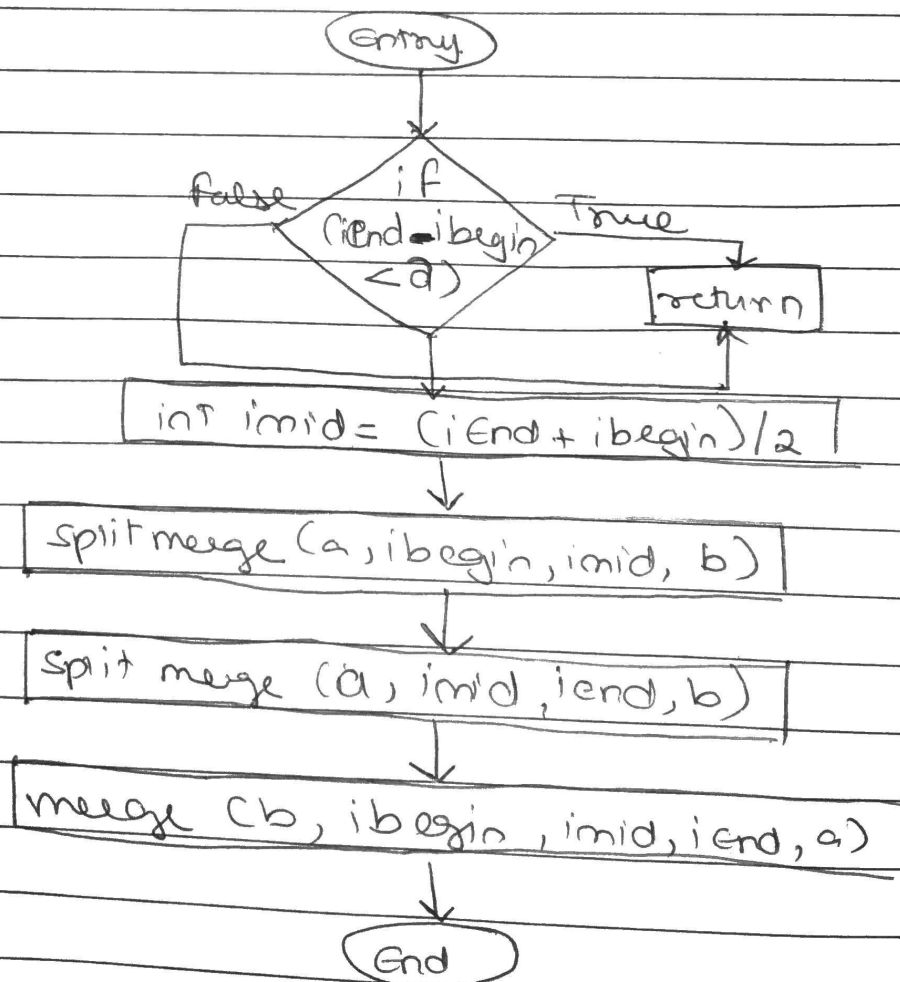 Entry.
if
False
True
(iEnd-ibegin
<2)
return
int imid = (iEnd + ibegin)/2
split merge (a, ibegin, imid, b)
split merge (a, imid, iend, b)
merge (b, ibegin, imid, iEnd, a)
End